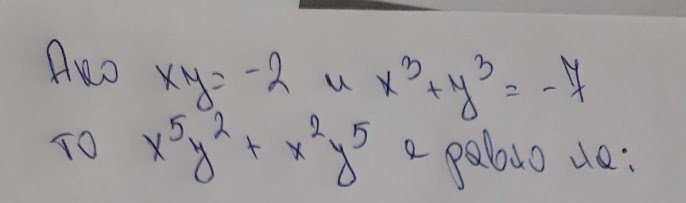 Ако xy = -2 и x³ + y³ = -7
то x⁵y² + x²y⁵ е равно на: